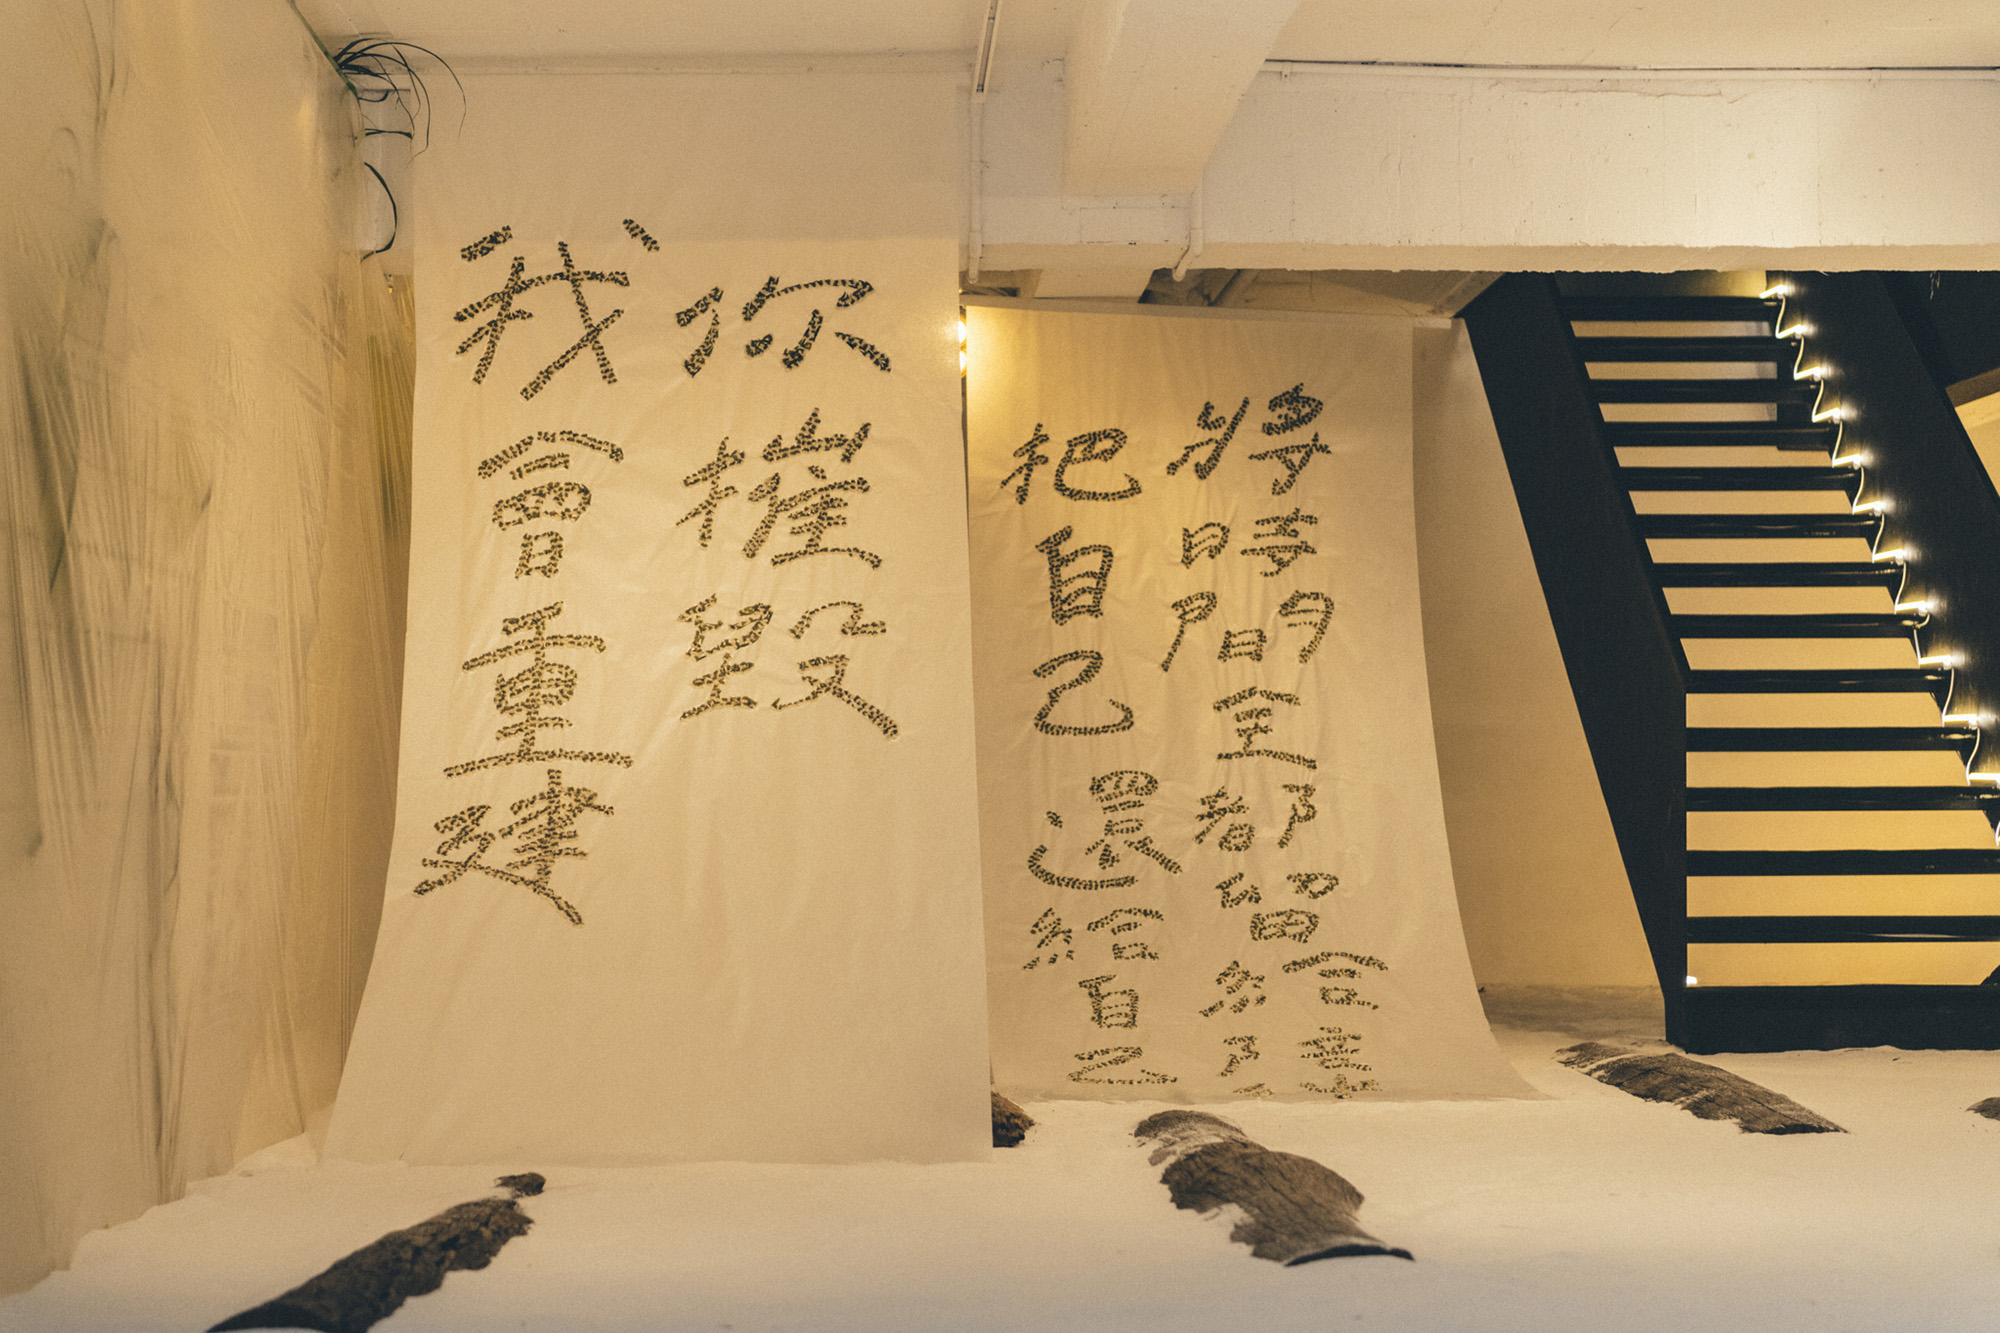 將時間全都留給
把自己還給自己
你摧毀
我會重建